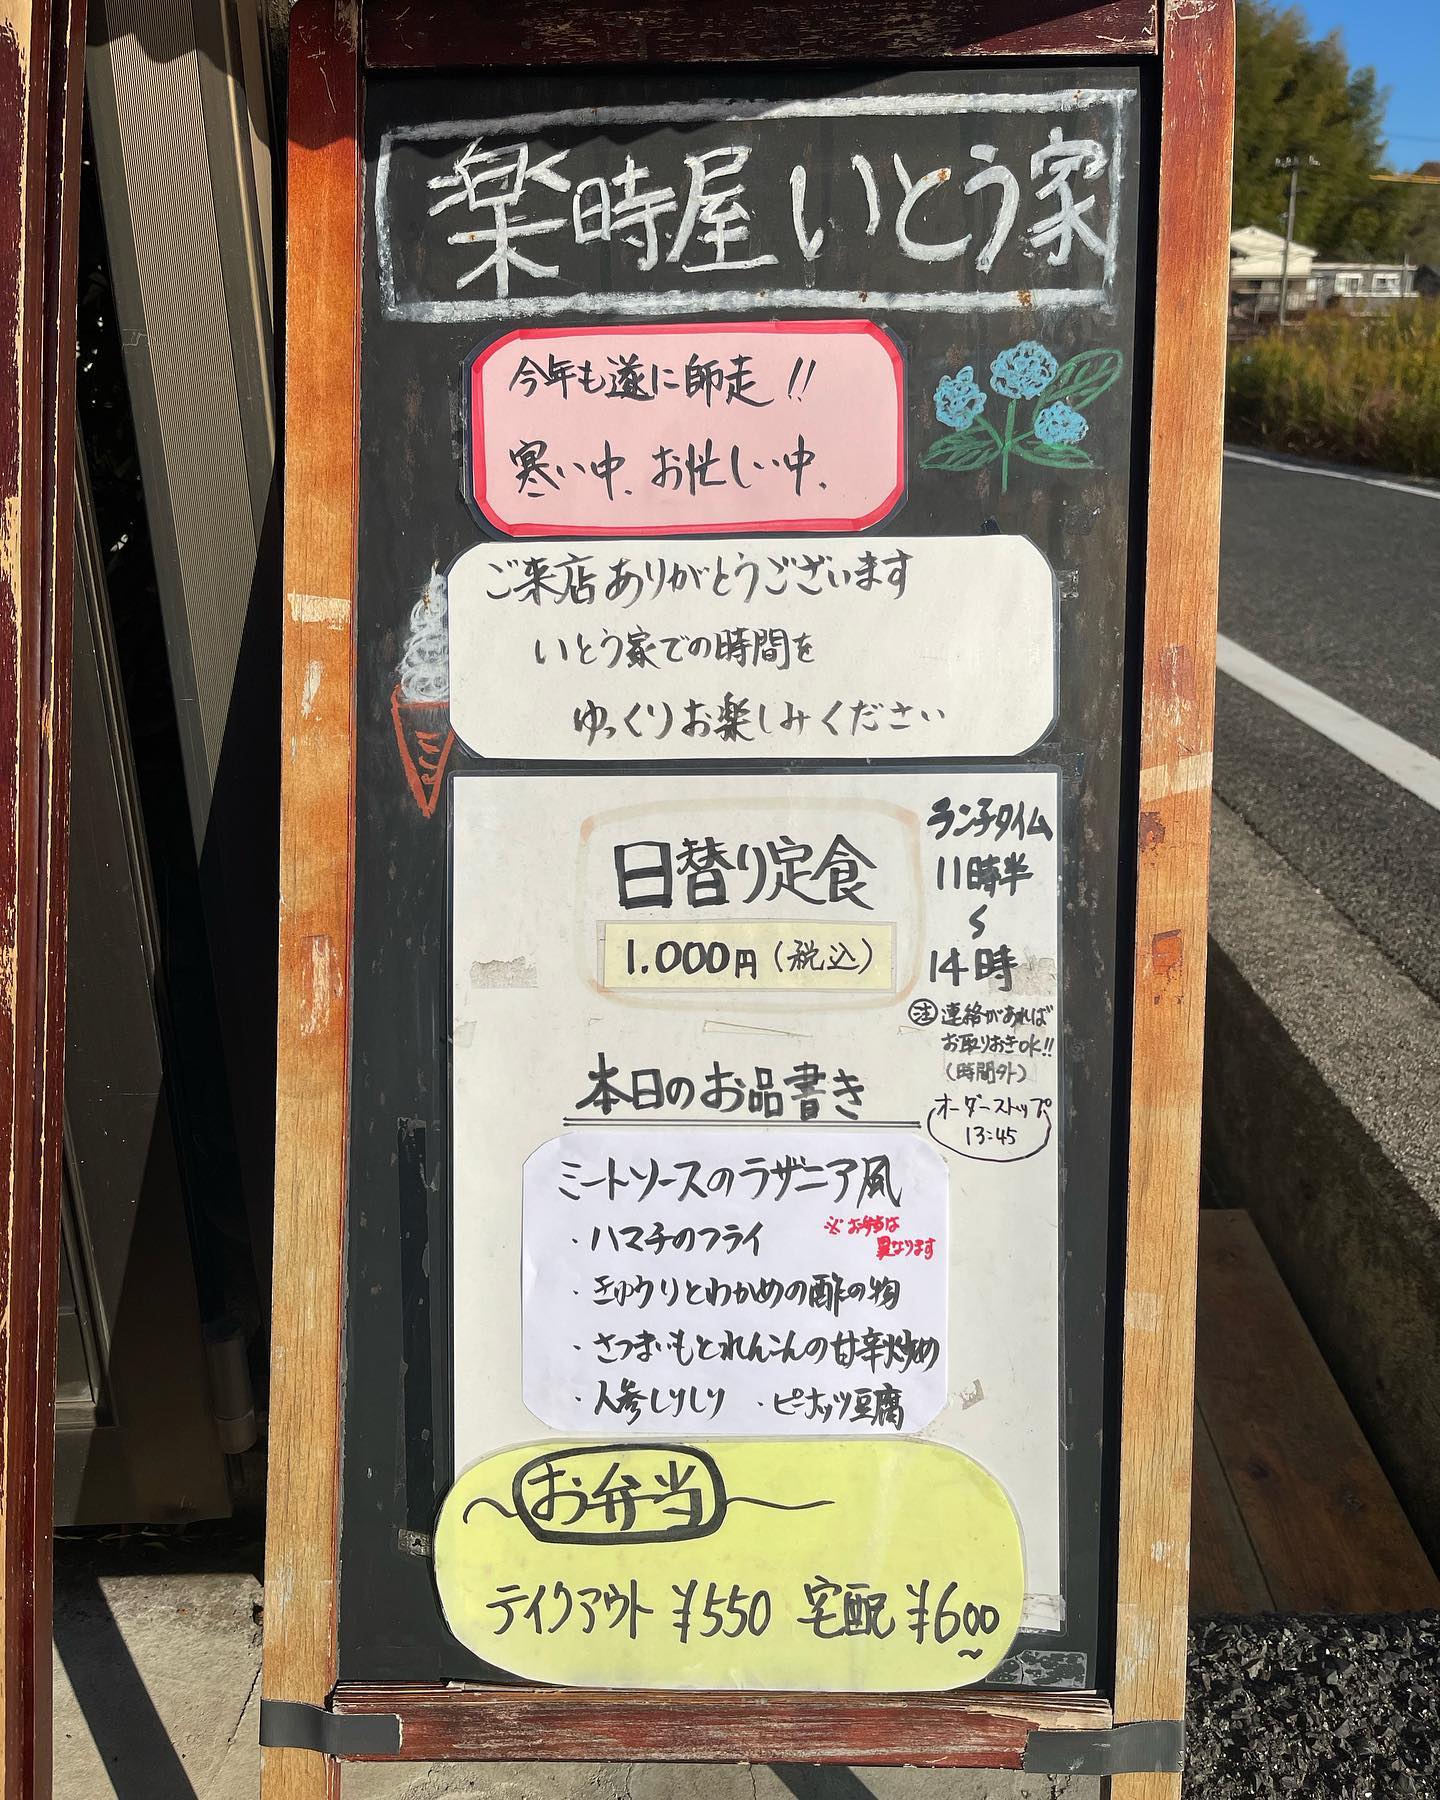 楽時屋 いとう家
今年も遂に師走!!
寒い中、お忙しい中、
ご来店ありがとうございます
いとう家での時間を
ゆっくりお楽しみください
日替り定食
1.000円(税込)
ランチタイム
11時半
~
14時
注 連絡があれば
お取りおきOK!!
(時間外)
オーダーストップ
13:45
本日のお品書き
ミートソースのラザニア風
・ハマチのフライ
※お弁当は
異なります
・きゅうりとわかめの酢の物
・さつまいもとれんこんの甘辛炒め
・人参しりしり ・ピーナッツ豆腐
お弁当
テイクアウト ¥550 宅配 ¥600~